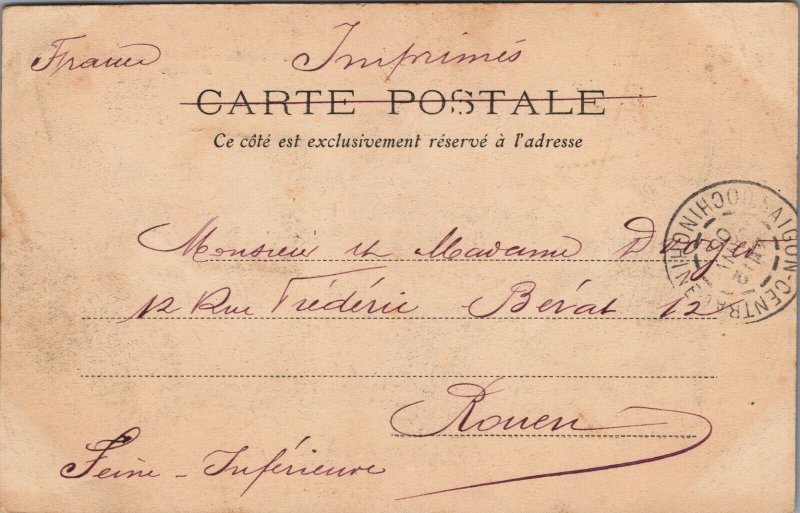 France Imprimés
CARTE POSTALE
Ce côté est exclusivement réservé à l'adresse
Monsieur et Madame
12 Rue Frédéric Bérat 12
Rouen
Seine-Inférieure
SAIGON-CENTRAL COCHINCHINE